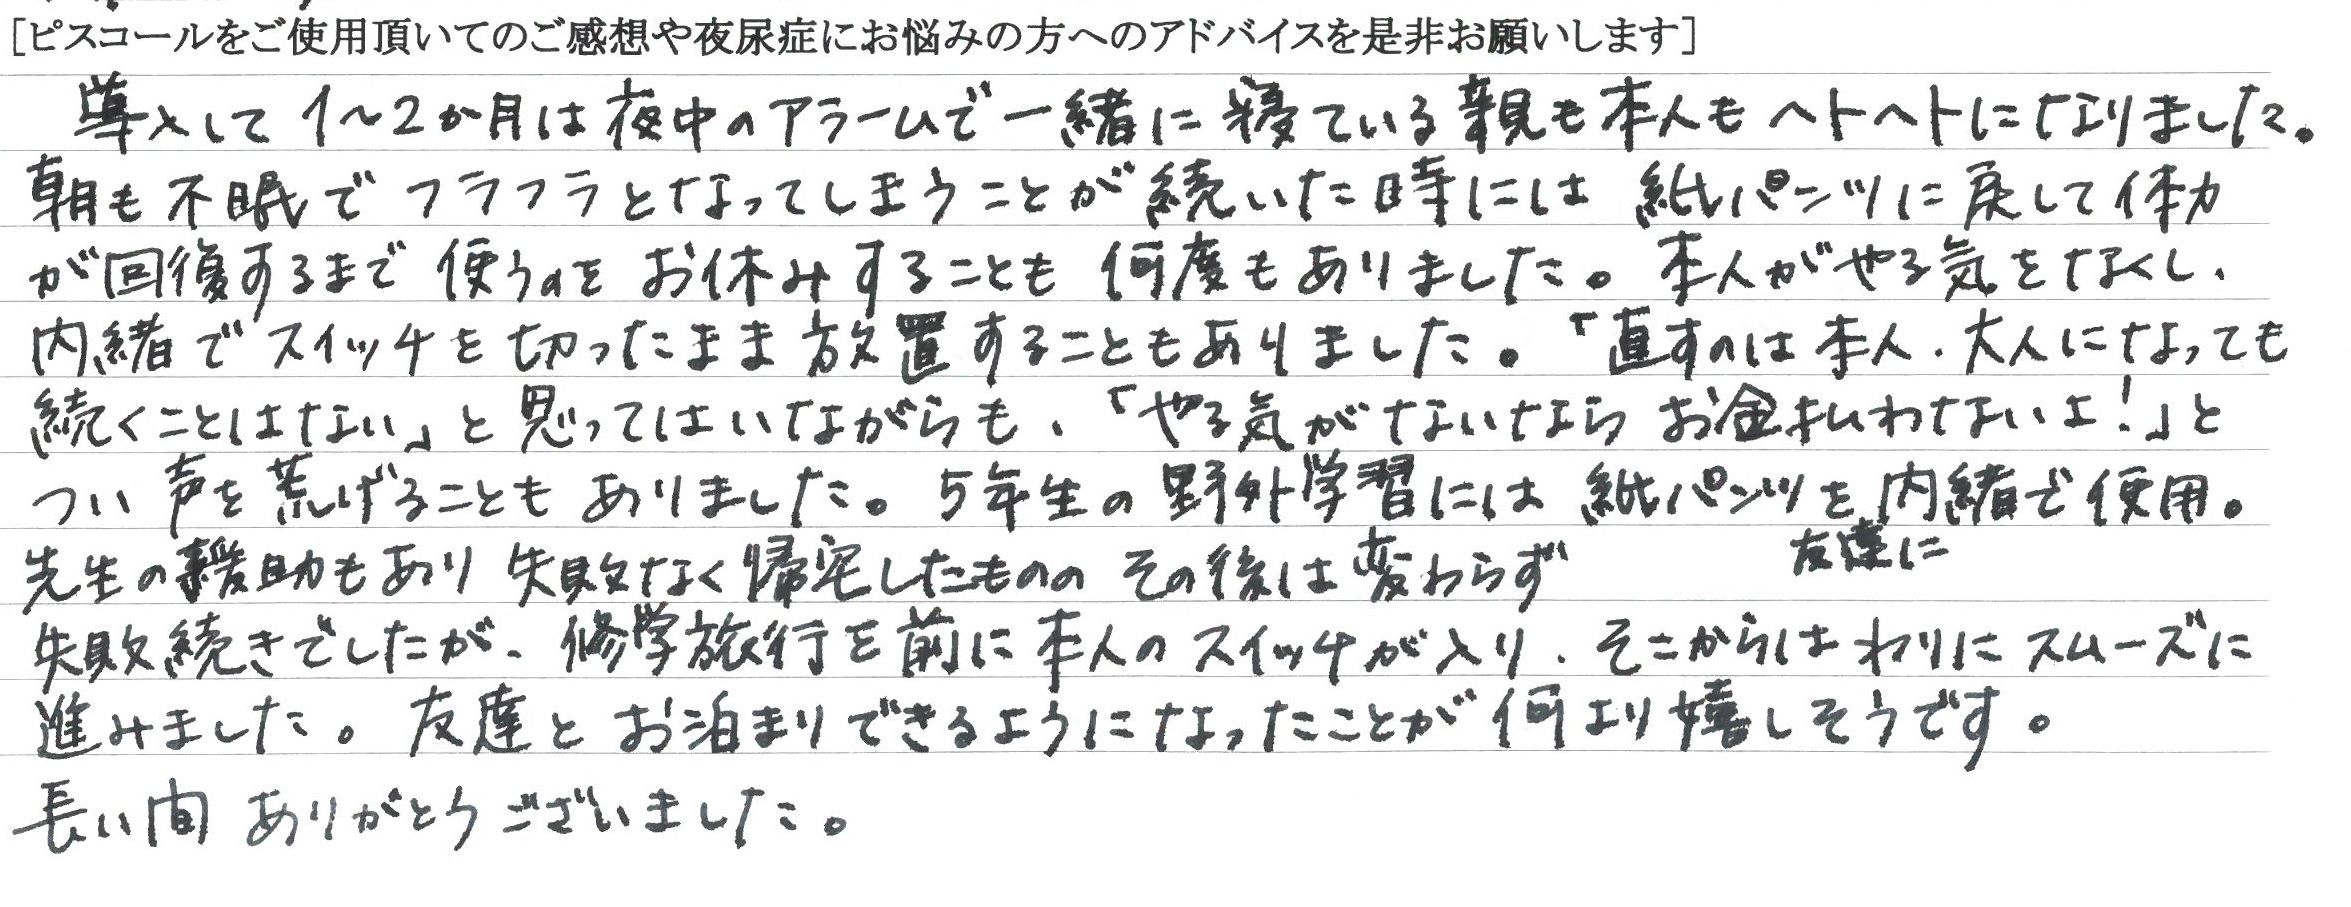 [ピスコールをご使用頂いてのご感想や夜尿症にお悩みの方へのアドバイスを是非お願いします]
導入して1〜2か月は夜中のアラームで一緒に寝ている親も本人もヘトヘトになりました。
朝も不眠でフラフラとなってしまうことが続いた時には紙パンツに戻して体力
が回復するまで使うのをお休みすることも何度もありました。本人がやる気をなくし、
内緒でスイッチを切ったまま放置することもありました。「直すのは本人、大人になっても
続くことはない」と思ってはいながらも、「やる気がないならお金払わないよ!」と
つい声を荒げることもありました。5年生の野外学習には紙パンツを友達に内緒で使用。
先生の援助もあり失敗なく帰宅したもののその後は変わらず
失敗続きでしたが、修学旅行を前に本人のスイッチが入り、そこからはわりにスムーズに
進みました。友達とお泊まりできるようになったことが何より嬉しそうです。
長い間ありがとうございました。